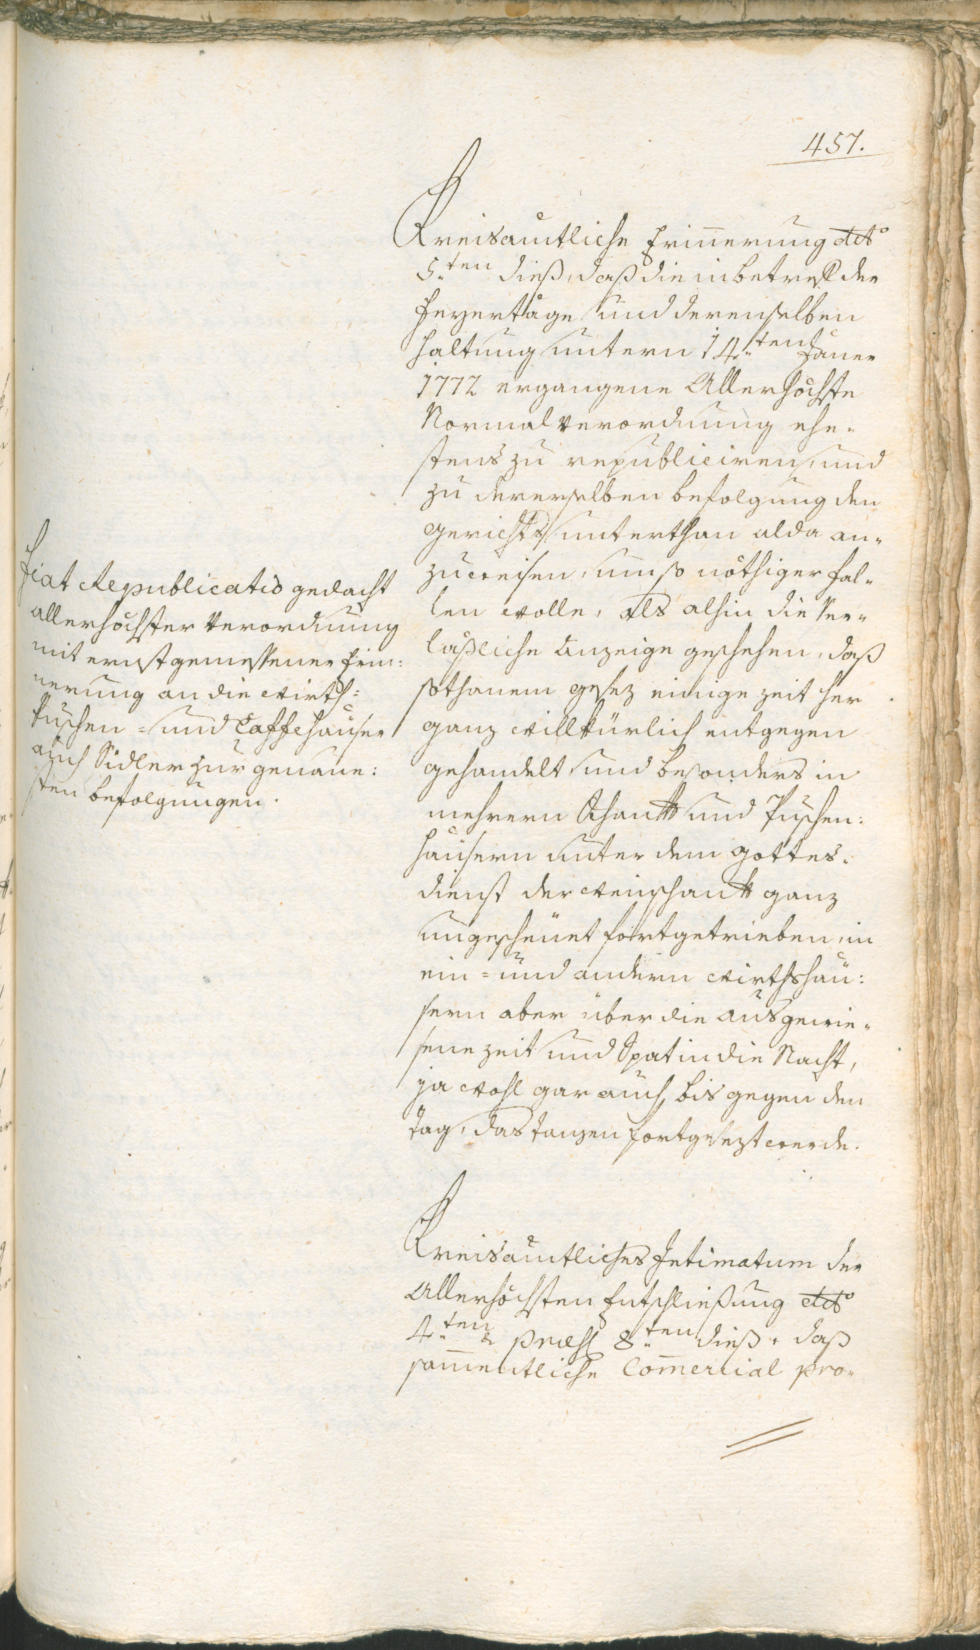 457.
Kreisämtliche Erinnerung ddto
5.ten dieß, daß die in betreff der
Feyertäge und derenselben
Haltung untern 14.ten Jäner
1772 ergangene Allerhöchste
Normalverordnung ehe-
stens zu republiciren, und
zu dererselben befolgung den
Gerichts unterthan alda an-
zuweisen, umso nöthiger fal-
len wolle, Als alhin die Ver-
läßliche Anzeige geschehen, daß
sothanem gesez einige zeit her
ganz willkürlich entgegen
gehandelt und besonders in
mehrern Schanckh und Puschen:
häusern unter dem Gottes-
dienst der Weinschanckh ganz
ungescheuet fortgetrieben, in
ein= und andern Wirthshäu:
sern aber über die ausgewie-
sene zeit und Spat in die Nacht,
ja wohl gar auch bis gegen den
tag, das tanzen fortgesezt werde.
Fiat Republicatio gedacht
allerhöchster Verordnung
mit ernstgemessener Erin:
nerung an die Wirth=
Puschen= und Caffehäuser
auch Sidler zur genaue:
sten befolgungen.
Kreisämtliches Intimatum der
Allerhöchsten Entschließung ddto
4.ten & præs 8.ten dieß, daß
sam̄entliche Com̄ercial pro-